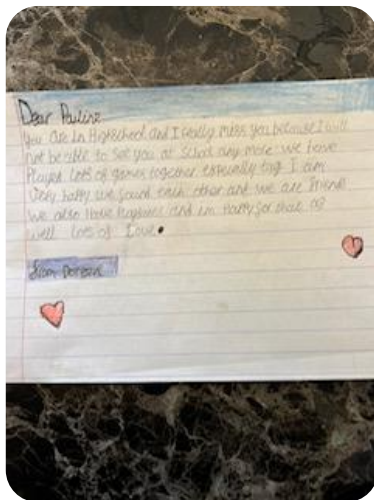 Dear Pauline
You are in Highschool and I really miss you because I will
not be able to see you at school any more. we have
Played lots of games together especially tag I am
Very happy we found each other and we are friends
We also Have Playdates and im Happy for that as
well lots of Love.
from